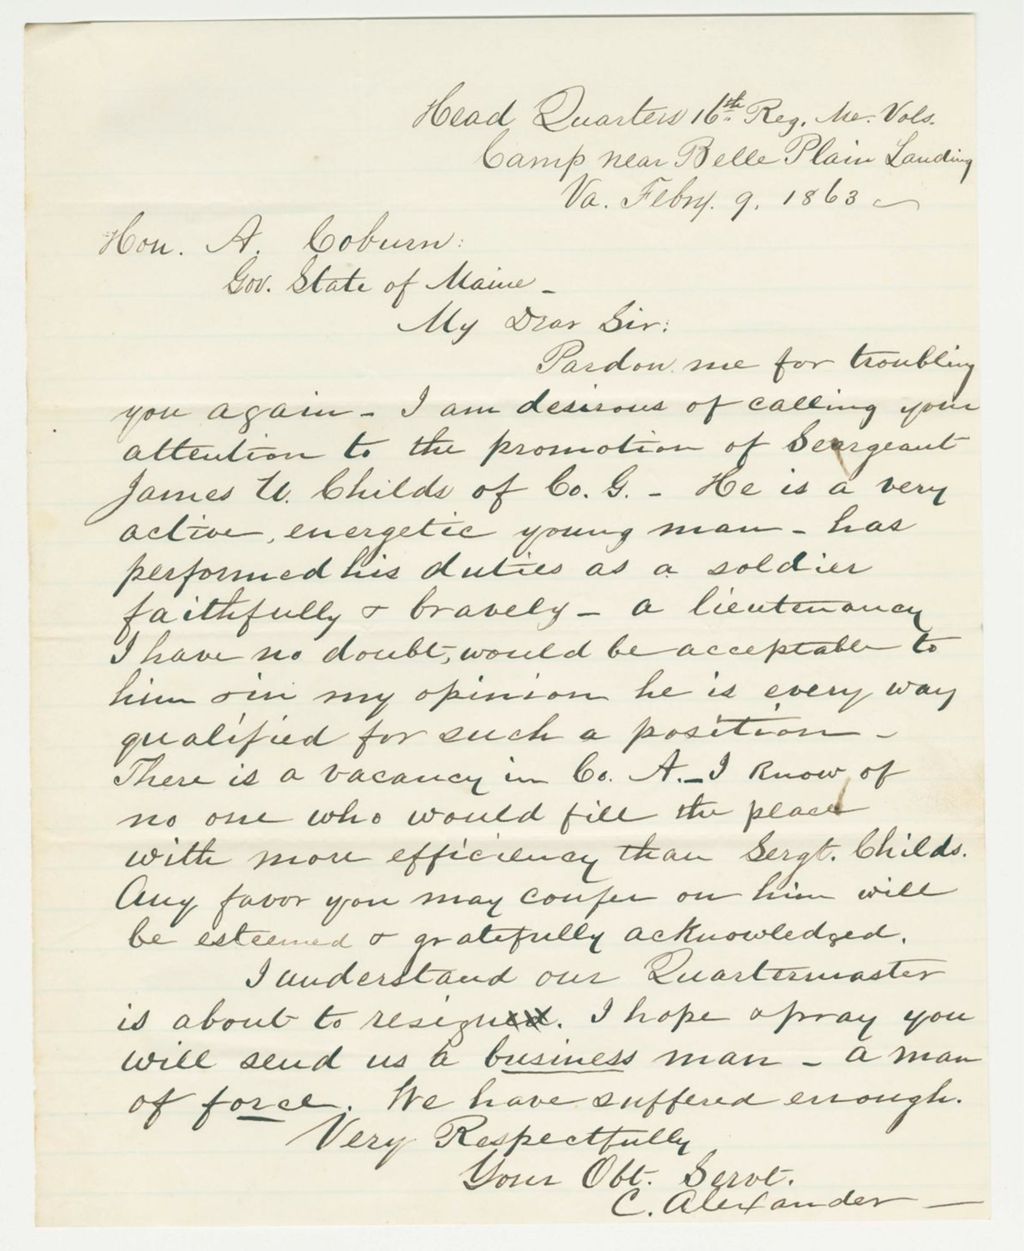 Head Quarters 16th Reg. Me. Vols.
Camp near Belle Plain Landing
Va. Febry. 9. 1863
Hon. A. Coburn:
Gov. State of Maine -
My Dear Sir:
Pardon me for troubling
you again - I am desirous of calling your
attention to the promotion of Seargeant
James U. Childs of Co. G. - He is a very
active, energetic young man - has
performed his duties as a soldier
faithfully & bravely - a lieutenancy
I have no doubt, would be acceptable to
him & in my opinion he is every way
qualified for such a position -
There is a vacancy in Co. A. - I know of
no one who would fill the place
with more efficiency than Sergt. Childs.
Any favor you may confer on him will
be esteemed & gratefully acknowledged.
I understand our Quartermaster
is about to resign. I hope & pray you
will send us a business man - a man
of force. We have suffered enough.
Very Respectfully
Your Obt. Servt.
C. Alexander -